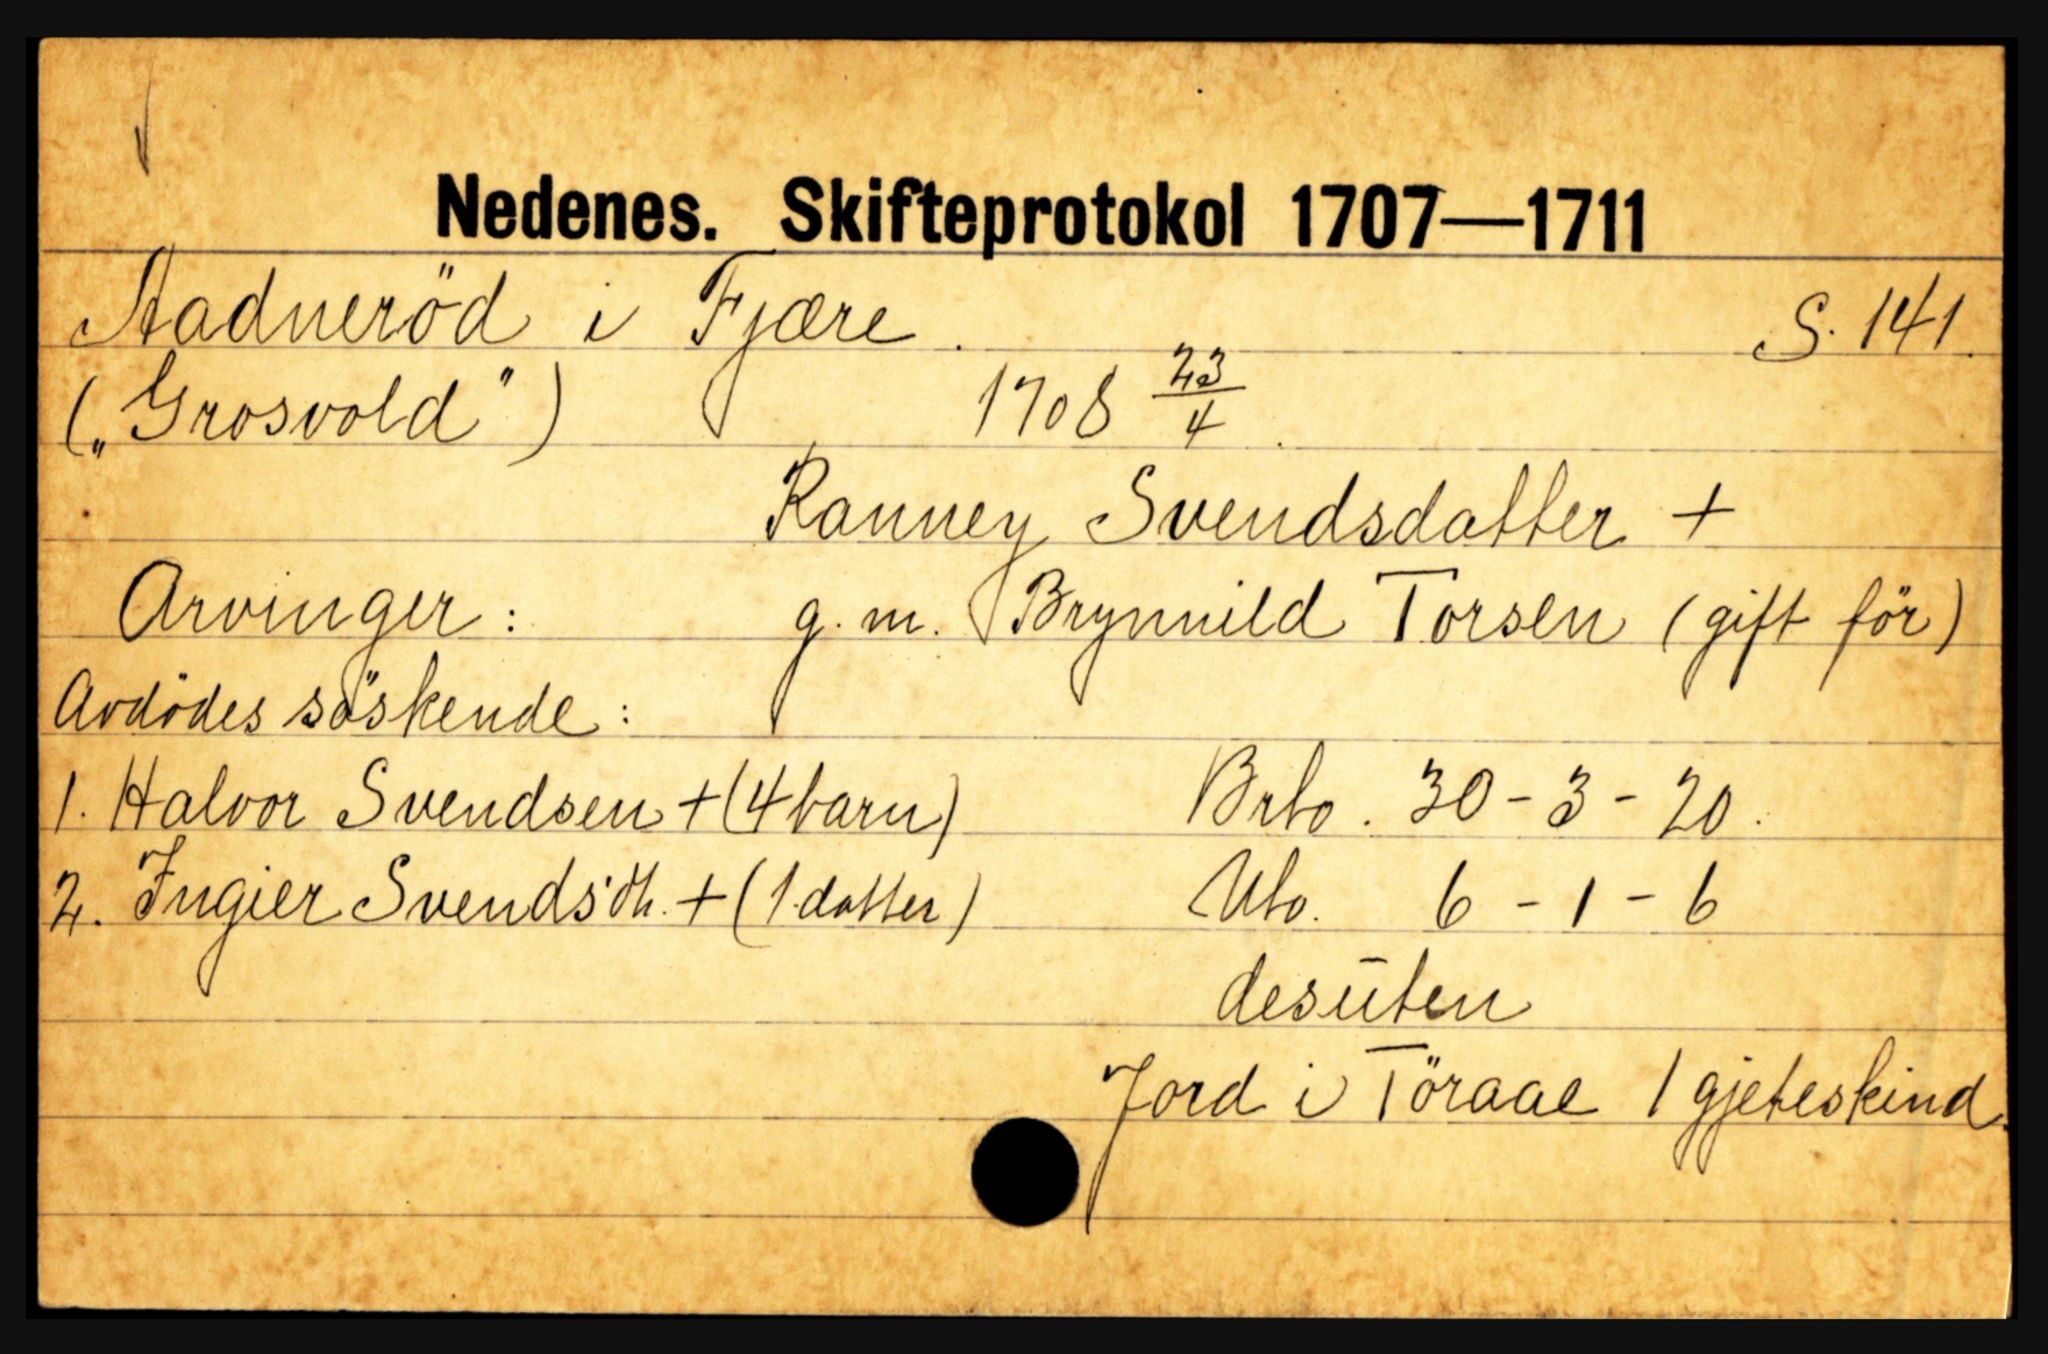 Nedenes. Skifteprotokol 1707—1711
Aadneröd i Fjære. S. 141.
(„Grosvold") 1708 23/4.
Ranney Svendsdatter +
Arvinger: g. m. Brynnild Torsen (gift för)
Avdödes söskende:
1. Halvor Svendsen + (4 barn) Brto. 30 - 3 - 20.
2. Ingier Svends'dt. + (1 datter) Nto. 6 - 1 - 6
desuten
Jord i Töraae 1 gjeteskind.